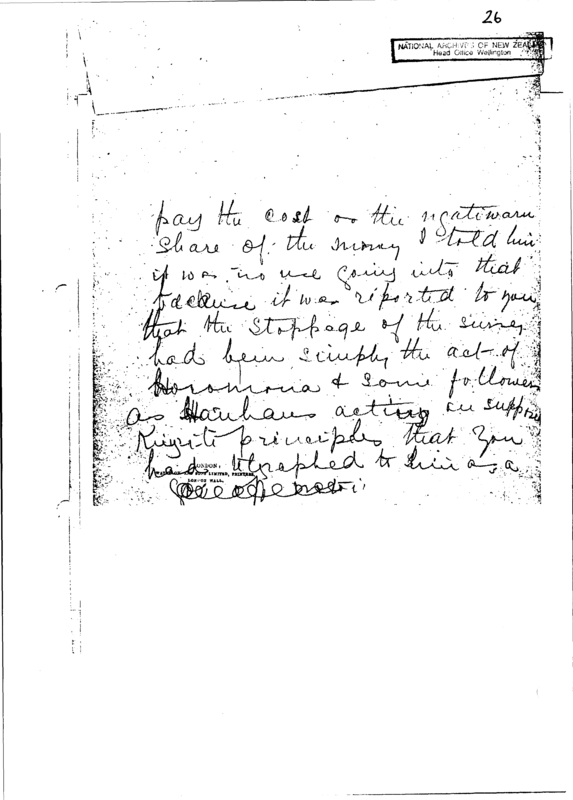 26
NATIONAL ARCHIVES OF NEW ZEALAND
Head Office Wellington
pay the cost on the ngatiwaru
share of the money I told him
it was no use going into that
because it was reported to you
that the stoppage of the survey
had been simply the act of
Horomona & some followers
as Hauhaus acting on suppose
Kingite principles that you
had telegraphed to him as a
LONDON:
LIMITED, PRINTERS,
LONDON WALL.